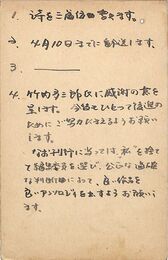 1. 詩を三篇位書きます。
2. 4月10日までに郵送します。
3. ————
4. 竹内多三郎氏に感謝の意を
呈します。今後もひとつ後進の
ためにご努力下さるようお願い
します。
なお刊行に当っては、"私"を捨て
て編集委員を選び、公正な
判断によって、良い作品を
良いアンソロジーをおすすめお願い
します。